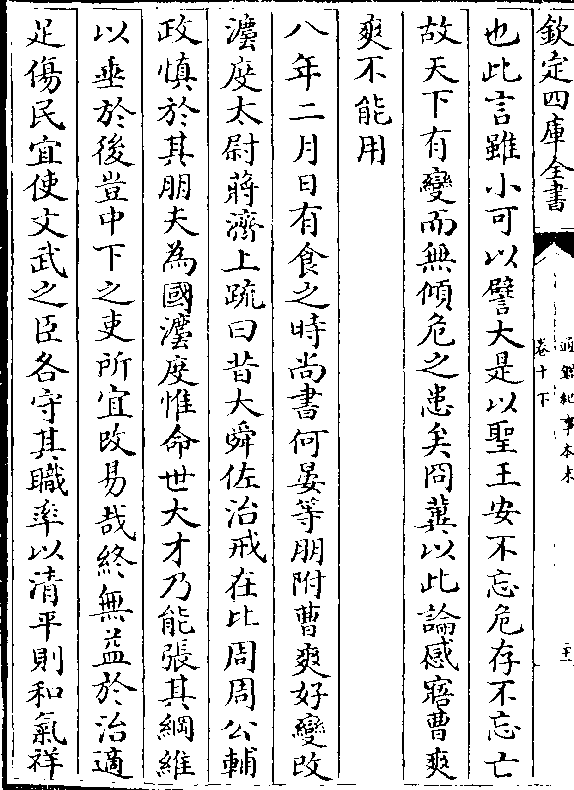 欽定四庫全書
通鑑紀事本末
卷十下
也此言雖小可以譬大是以聖王安不忘危存不忘亡
故天下有變而無傾危之患矣冏冀以此論感寤曹爽
爽不能用
八年二月日有食之時尚書何晏等朋附曹爽好變改
灋度太尉蔣濟上䟽曰昔大舜佐治戒在比周周公輔
政慎於其朋夫為國灋度惟命世大才乃能張其綱維
以垂於後豈中下之吏所宜改易哉終無益於治適
足傷民宜使文武之臣各守其職率以清平則和氣祥